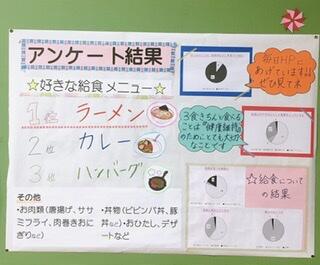 アンケート結果
☆好きな給食メニュー☆
1位 ラーメン
2位 カレー
3位 ハンバーグ
その他
・お肉類(唐揚げ、ササ
ミフライ、肉巻きおに
ぎりなど)
・丼物(ビビンバ丼、豚
丼など)・おひたし、デザ
ートなど
毎日HPに
あげています!!
ぜひ見て
3食きちんと食べる
ことは"健康維持"
のためにとても大切
なことです
☆給食についての
結果